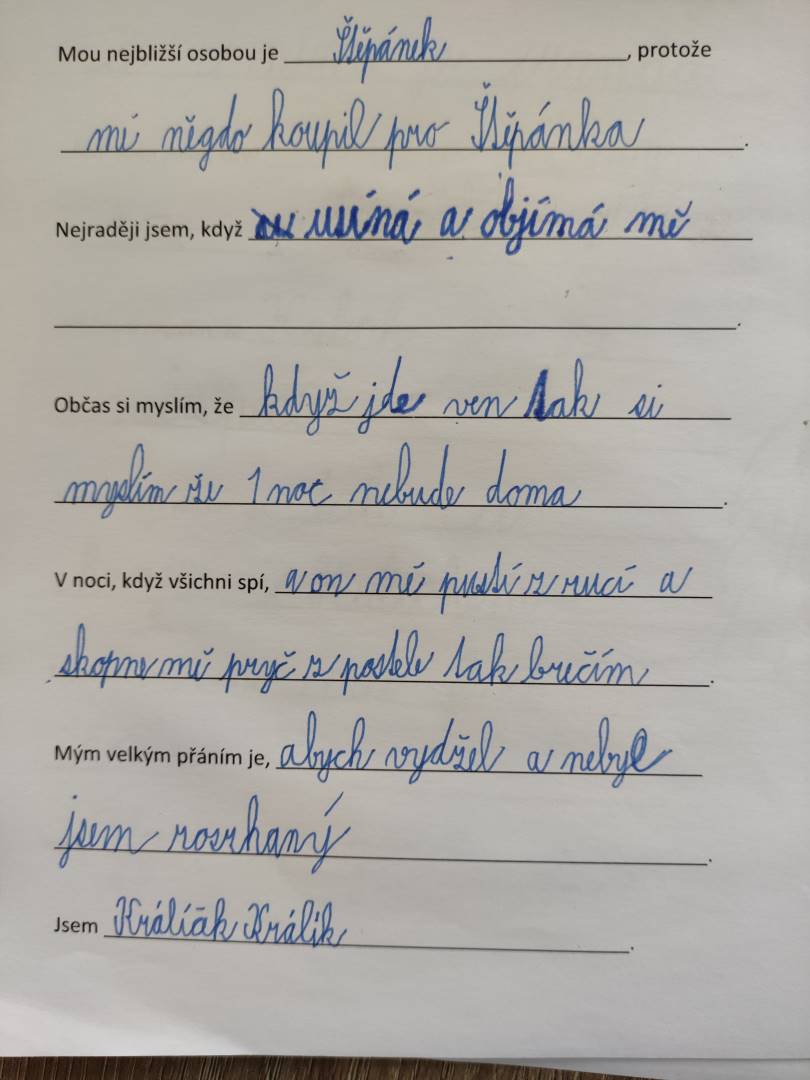 Mou nejbližší osobou je Štěpánek, protože
mi někdo koupil pro Štěpánka.
Nejraději jsem, když usíná a objímá mě
.
Občas si myslím, že když jde ven tak si
myslím že 1 noc nebude doma.
V noci, když všichni spí, a on mě pustí z rucí a
skopne mě pryč z postele tak brečím.
Mým velkým přáním je, abych vydžel a nebyl
jsem rosrhaný.
Jsem Králíčák Králík.